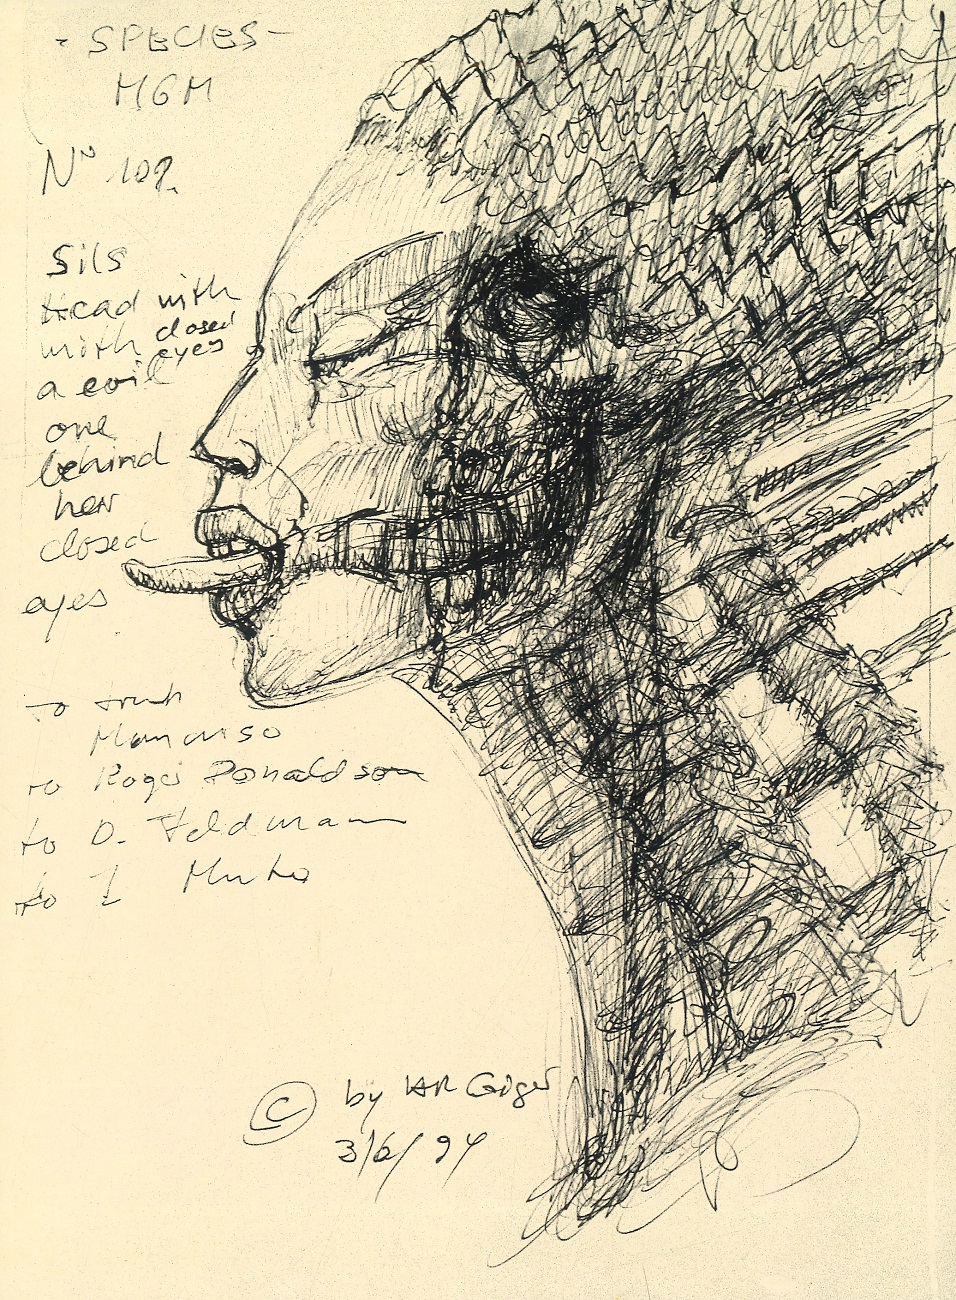 - SPECIES -
MGM
No 109.
Sils
Head with
with closed
eyes
a evil
one
behind
her
closed
eyes
to Frank
Mancuso
to Roger Donaldson
to D. Feldmann
to
© by HR Giger
3/6/94